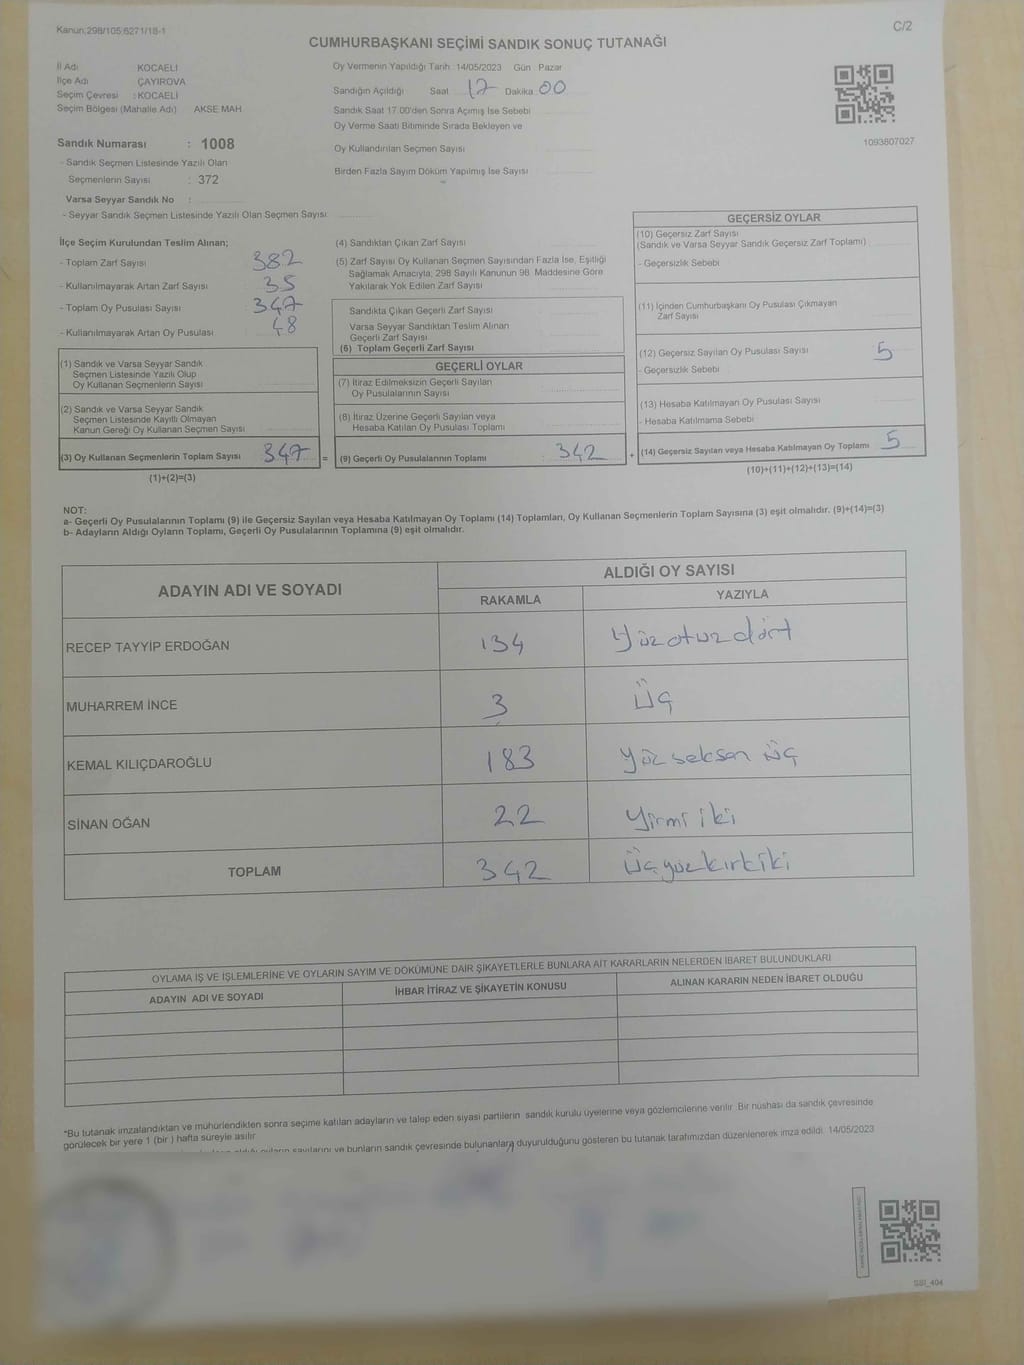 Kanun:298/105;6271/18-1
C/2
CUMHURBAŞKANI SEÇİMİ SANDIK SONUÇ TUTANAĞI
İl Adı KOCAELİ
İlçe Adı ÇAYIROVA
Seçim Çevresi : KOCAELİ
Seçim Bölgesi (Mahalle Adı) AKSE MAH
Sandık Numarası : 1008
- Sandık Seçmen Listesinde Yazılı Olan
Seçmenlerin Sayısı : 372
Varsa Seyyar Sandık No :
- Seyyar Sandık Seçmen Listesinde Yazılı Olan Seçmen Sayısı
Oy Vermenin Yapıldığı Tarih :14/05/2023 Gün : Pazar
Sandığın Açıldığı Saat 17 Dakika 00
Sandık Saat 17.00'den Sonra Açımış İse Sebebi
Oy Verme Saati Bitiminde Sırada Bekleyen ve
Oy Kullandırılan Seçmen Sayısı
Birden Fazla Sayım Döküm Yapılmış İse Sayısı
1093807027
İlçe Seçim Kurulundan Teslim Alınan;
- Toplam Zarf Sayısı 382
- Kullanılmayarak Artan Zarf Sayısı 35
- Toplam Oy Pusulası Sayısı 347
- Kullanılmayarak Artan Oy Pusulası 48
(1) Sandık ve Varsa Seyyar Sandık
Seçmen Listesinde Yazılı Olup
Oy Kullanan Seçmenlerin Sayısı
(2) Sandık ve Varsa Seyyar Sandık
Seçmen Listesinde Kayıtlı Olmayan
Kanun Gereği Oy Kullanan Seçmen Sayısı
(3) Oy Kullanan Seçmenlerin Toplam Sayısı 347 =
(1)+(2)=(3)
(4) Sandıktan Çıkan Zarf Sayısı
(5) Zarf Sayısı Oy Kullanan Seçmen Sayısından Fazla İse, Eşitliği
Sağlamak Amacıyla, 298 Sayılı Kanunun 98. Maddesine Göre
Yakılarak Yok Edilen Zarf Sayısı
Sandıkta Çıkan Geçerli Zarf Sayısı
Varsa Seyyar Sandıktan Teslim Alınan
Geçerli Zarf Sayısı
(6) Toplam Geçerli Zarf Sayısı
GEÇERLİ OYLAR
(7) İtiraz Edilmeksizin Geçerli Sayılan
Oy Pusulalarının Sayısı
(8) İtiraz Üzerine Geçerli Sayılan veya
Hesaba Katılan Oy Pusulası Toplamı
(9) Geçerli Oy Pusulalarının Toplamı : 342 +
GEÇERSİZ OYLAR
(10) Geçersiz Zarf Sayısı
(Sandık ve Varsa Seyyar Sandık Geçersiz Zarf Toplamı)
- Geçersizlik Sebebi
(11) İçinden Cumhurbaşkanı Oy Pusulası Çıkmayan
Zarf Sayısı
(12) Geçersiz Sayılan Oy Pusulası Sayısı 5
- Geçersizlik Sebebi
(13) Hesaba Katılmayan Oy Pusulası Sayısı
- Hesaba Katılmama Sebebi
(14) Geçersiz Sayılan veya Hesaba Katılmayan Oy Toplamı 5
(10)+(11)+(12)+(13)=(14)
NOT:
a- Geçerli Oy Pusulalarının Toplamı (9) ile Geçersiz Sayılan veya Hesaba Katılmayan Oy Toplamı (14) Toplamları, Oy Kullanan Seçmenlerin Toplam Sayısına (3) eşit olmalıdır. (9)+(14)=(3)
b- Adayların Aldığı Oyların Toplamı, Geçerli Oy Pusulalarının Toplamına (9) eşit olmalıdır.
ADAYIN ADI VE SOYADI
ALDIĞI OY SAYISI
RAKAMLA YAZIYLA
RECEP TAYYİP ERDOĞAN 134 Yüzotuzdört
MUHARREM İNCE 3 Üç
KEMAL KILIÇDAROĞLU 183 Yüzseksen üç
SİNAN OĞAN 22 Yirmi iki
TOPLAM 342 Üçyüzkırkiki
OYLAMA İŞ VE İŞLEMLERİNE VE OYLARIN SAYIM VE DÖKÜMÜNE DAİR ŞİKAYETLERLE BUNLARA AİT KARARLARIN NELERDEN İBARET BULUNDUKLARI
ADAYIN ADI VE SOYADI İHBAR İTİRAZ VE ŞİKAYETİN KONUSU ALINAN KARARIN NEDEN İBARET OLDUĞU
*Bu tutanak imzalandıktan ve mühürlendikten sonra seçime katılan adayların ve talep eden siyasi partilerin sandık kurulu üyelerine veya gözlemcilerine verilir. Bir nüshası da sandık çevresinde
görülecek bir yere 1 (bir ) hafta süreyle asılır.
oyların sayılarını ve bunların sandık çevresinde bulunanlara duyurulduğunu gösteren bu tutanak tarafımızdan düzenlenerek imza edildi. 14/05/2023
SSI_404